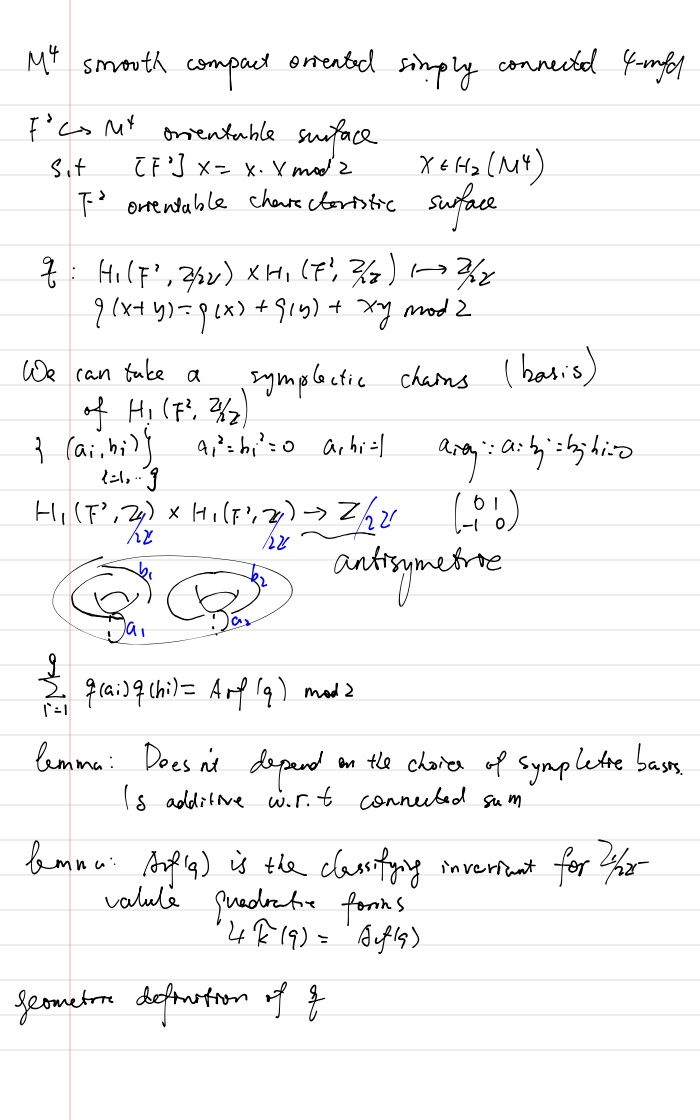 M⁴ smooth compact oriented simply connected 4-mfd
F² ↪ M⁴ orientable surface
s.t [F²] x = x·x mod 2 x ∈ H₂(M⁴)
F² orientable characteristic surface
q : H₁(F², Z/2Z) × H₁(F², Z/2Z) ↦ Z/2Z
q(x+y) = q(x) + q(y) + xy mod 2
We can take a symplectic chains (basis)
of H₁(F², Z/2Z)
{ (ai, bi) } ai² = bi² = 0 ai bi = 1 ai aj = ai bj = bj bi = 0
i=1,..g
H₁(F², Z/2Z) × H₁(F², Z/2Z) → Z/2Z (0 1
-1 0)
antisymetric
b₁ b₂
a₁ a₂
g
∑ q(ai) q(bi) = Arf(q) mod 2
i=1
lemma: Does nt depend on the choice of symplectic basis.
Is additive w.r.t connected sum
lemma: Arf(q) is the classifying invariant for Z/2Z-
valule quadratic forms
4 k̂(q) = Arf(q)
geometric definition of q